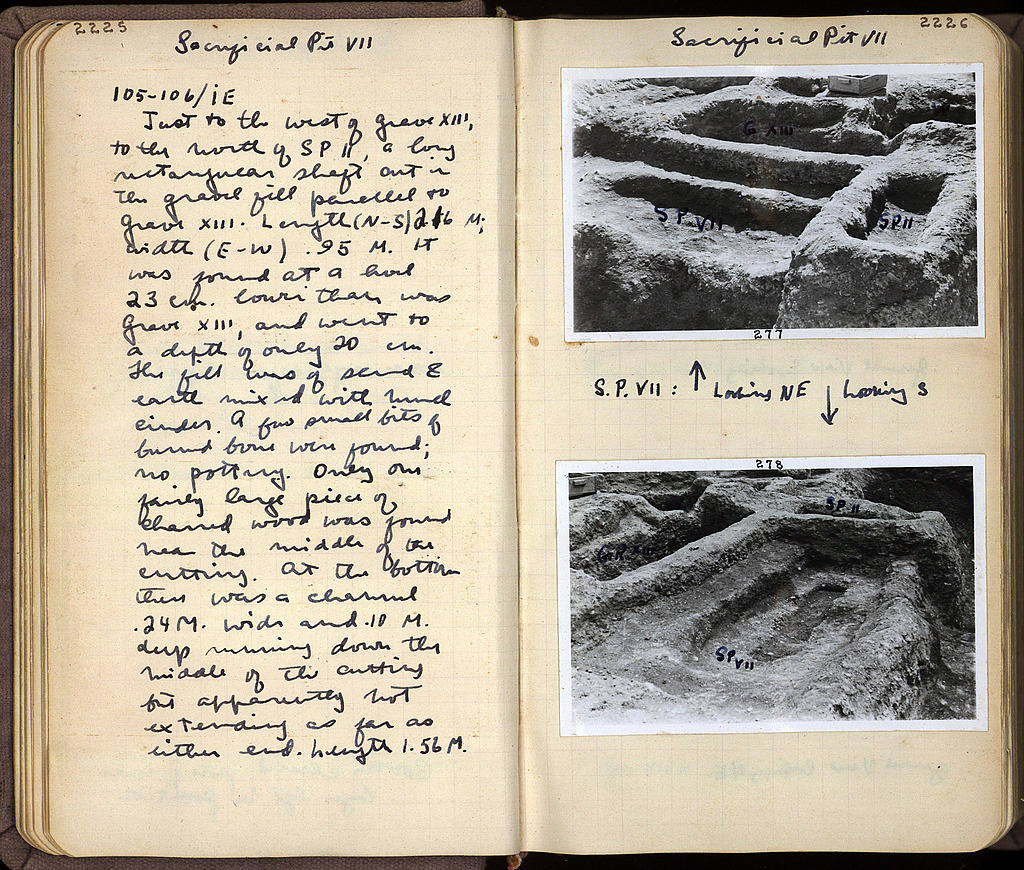 2225
Sacrificial Pit VII
105-106/ΙΕ
Just to the west of grave XIII,
to the north of SP II, a long
rectangular shaft cut in
the gravel fill parallel to
Grave XIII. Length (N-S) 2.16 M;
width (E-W) .95 M. It
was found at a level
23 cm. lower than was
Grave XIII, and went to
a depth of only 20 cm.
The fill was of sand &
earth mixed with much
cinder. A few small bits of
burned bone were found;
no pottery. Only one
fairly large piece of
charred wood was found
near the middle of the
cutting. At the bottom
there was a channel
.24 M. wide and .10 M.
deep running down the
middle of the cutting
but apparently not
extending as far as
either end. Length 1.56 M.
2226
Sacrificial Pit VII
G XIII
SP VII
SP II
277
S.P. VII: ↑ Looking NE ↓ Looking S
278
SP II
GR XIII
SP VII